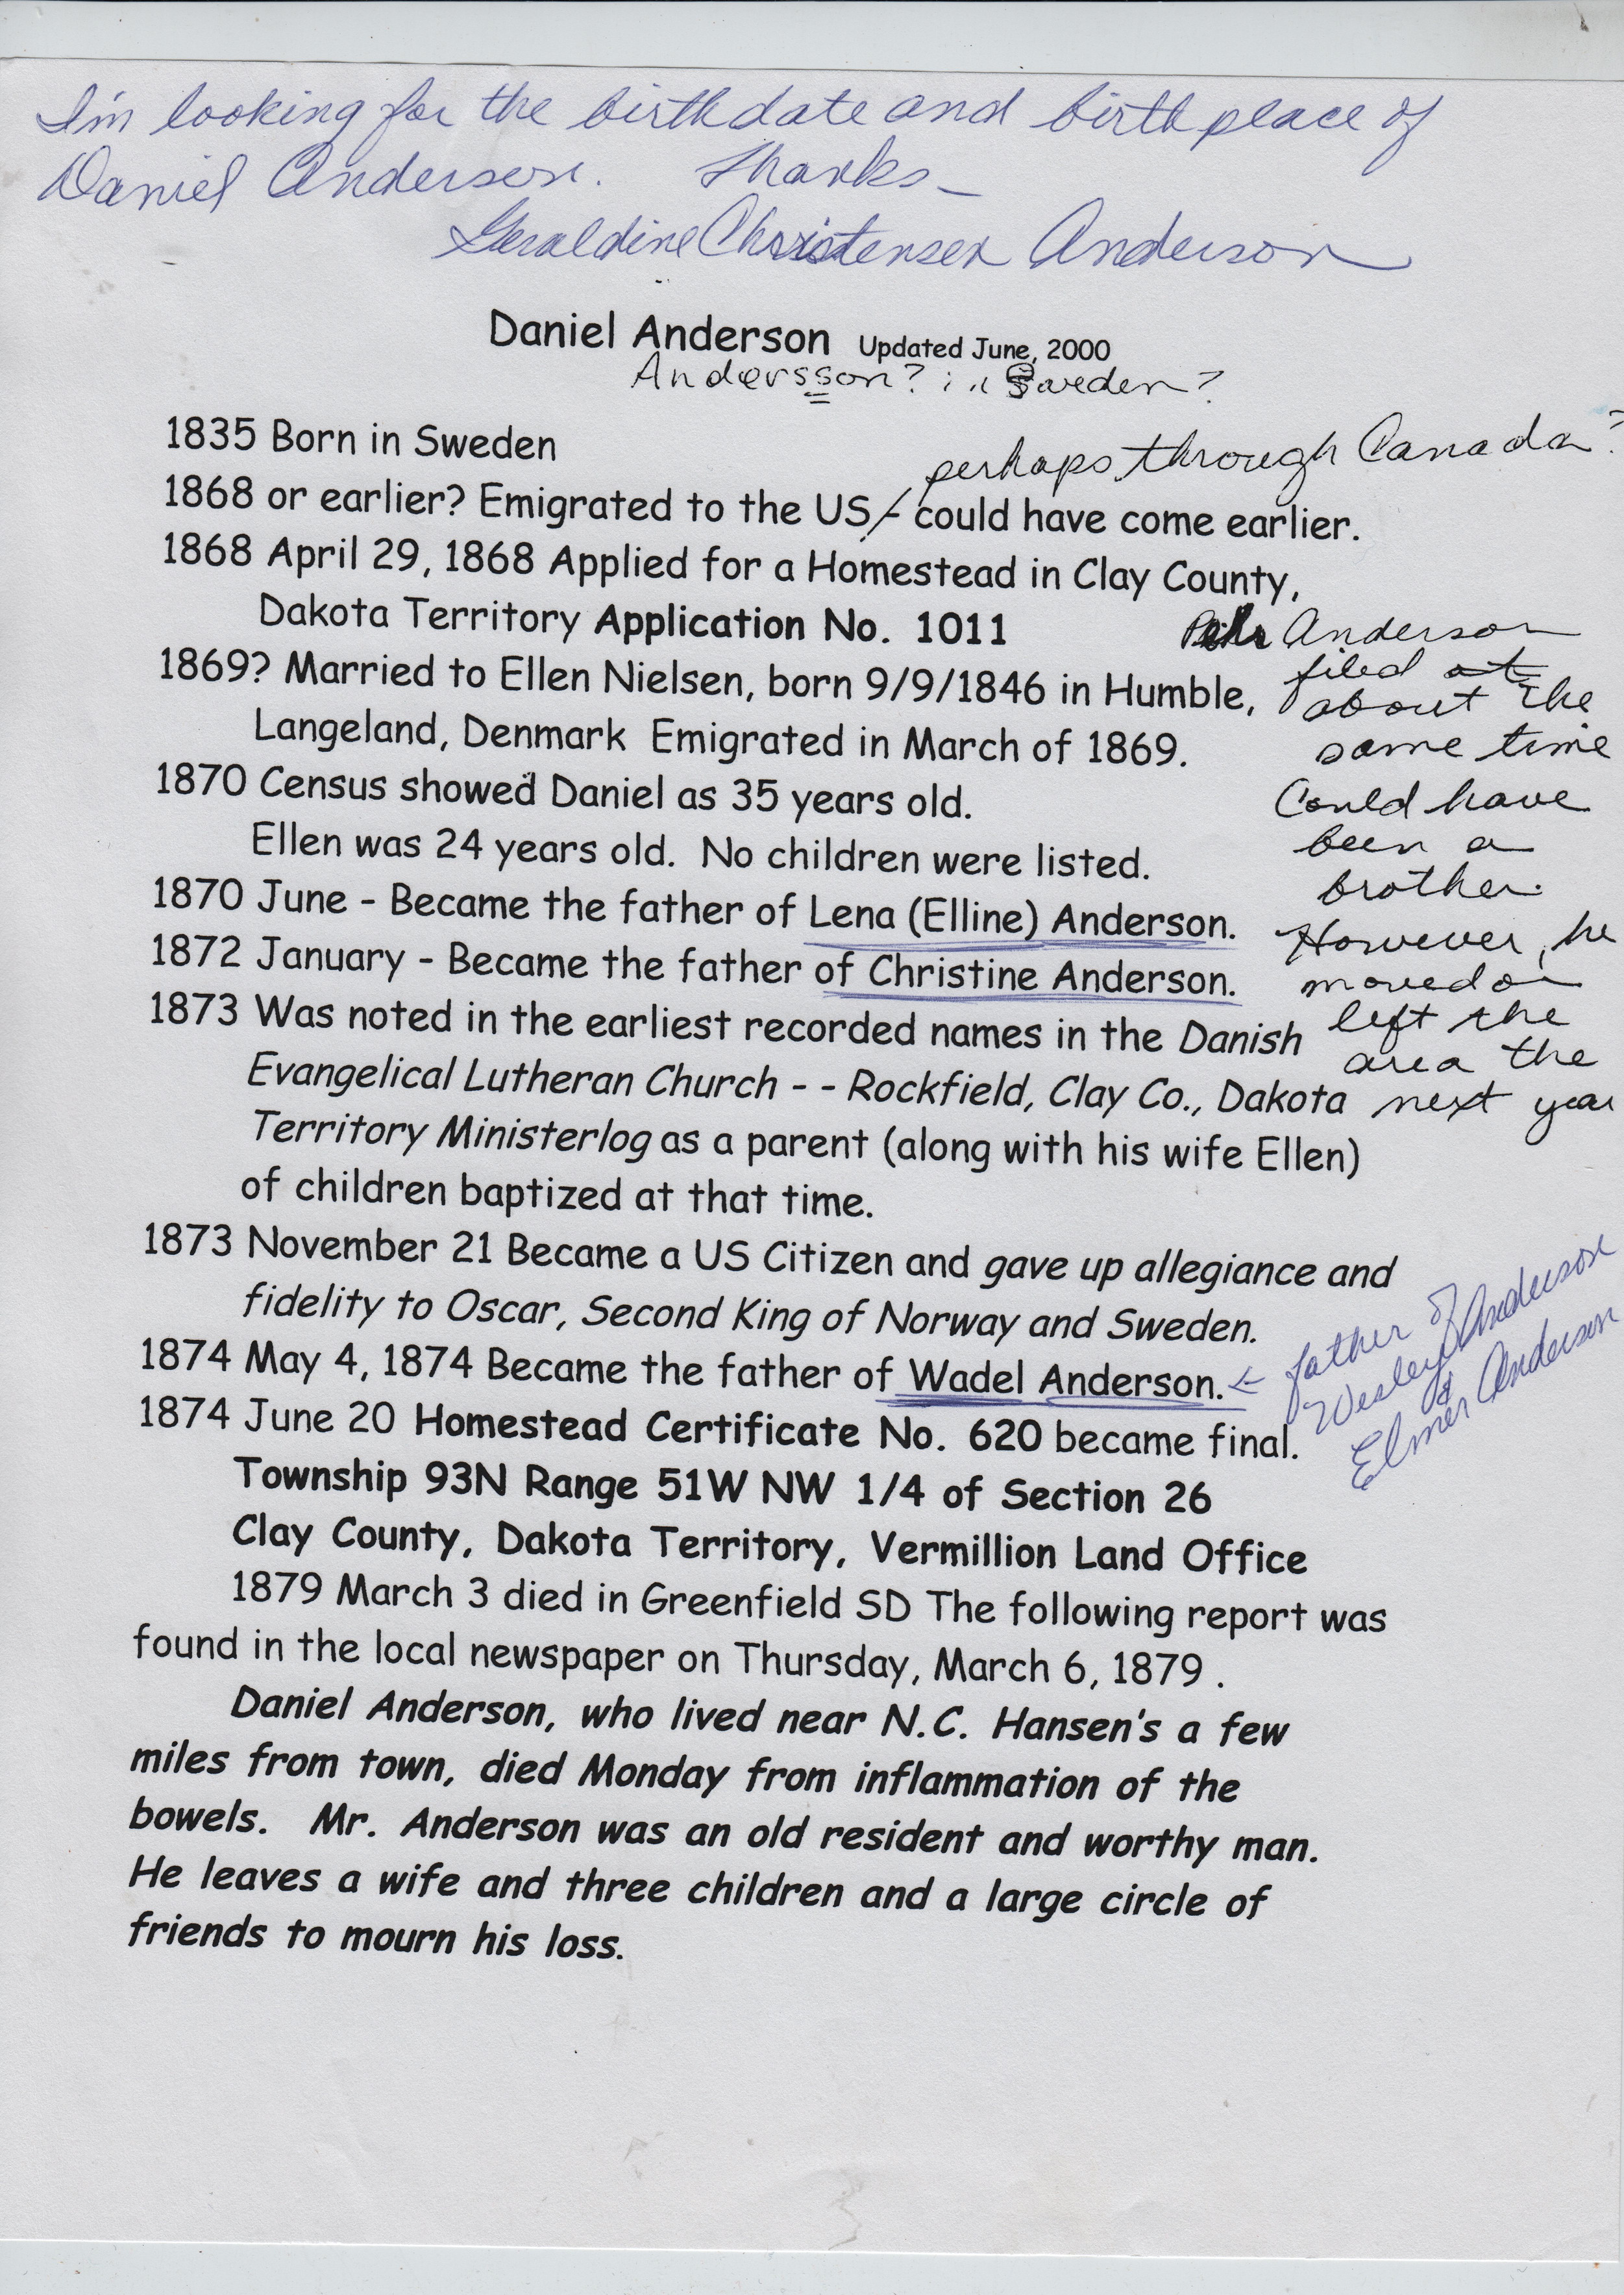 I'm looking for the birthdate and birthplace of
Daniel Anderson. Thanks—
Geraldine Christensen Anderson
Daniel Anderson Updated June, 2000
Andersson? in Sweden?
1835 Born in Sweden
perhaps through Canada?
1868 or earlier? Emigrated to the US/- could have come earlier.
1868 April 29, 1868 Applied for a Homestead in Clay County,
Dakota Territory Application No. 1011
1869? Married to Ellen Nielsen, born 9/9/1846 in Humble,
Langeland, Denmark Emigrated in March of 1869.
1870 Census showed Daniel as 35 years old.
Ellen was 24 years old. No children were listed.
1870 June - Became the father of Lena (Elline) Anderson.
1872 January - Became the father of Christine Anderson.
1873 Was noted in the earliest recorded names in the Danish
Evangelical Lutheran Church - - Rockfield, Clay Co., Dakota
Territory Ministerlog as a parent (along with his wife Ellen)
of children baptized at that time.
Anderson
filed at
about the
same time
Could have
been a
brother.
However, he
moved on
left the
area the
next year
1873 November 21 Became a US Citizen and gave up allegiance and
fidelity to Oscar, Second King of Norway and Sweden.
1874 May 4, 1874 Became the father of Wadel Anderson.
← father of
Wesley Anderson
&
Elmer Anderson
1874 June 20 Homestead Certificate No. 620 became final.
Township 93N Range 51W NW 1/4 of Section 26
Clay County, Dakota Territory, Vermillion Land Office
1879 March 3 died in Greenfield SD The following report was
found in the local newspaper on Thursday, March 6, 1879 .
Daniel Anderson, who lived near N.C. Hansen's a few
miles from town, died Monday from inflammation of the
bowels. Mr. Anderson was an old resident and worthy man.
He leaves a wife and three children and a large circle of
friends to mourn his loss.